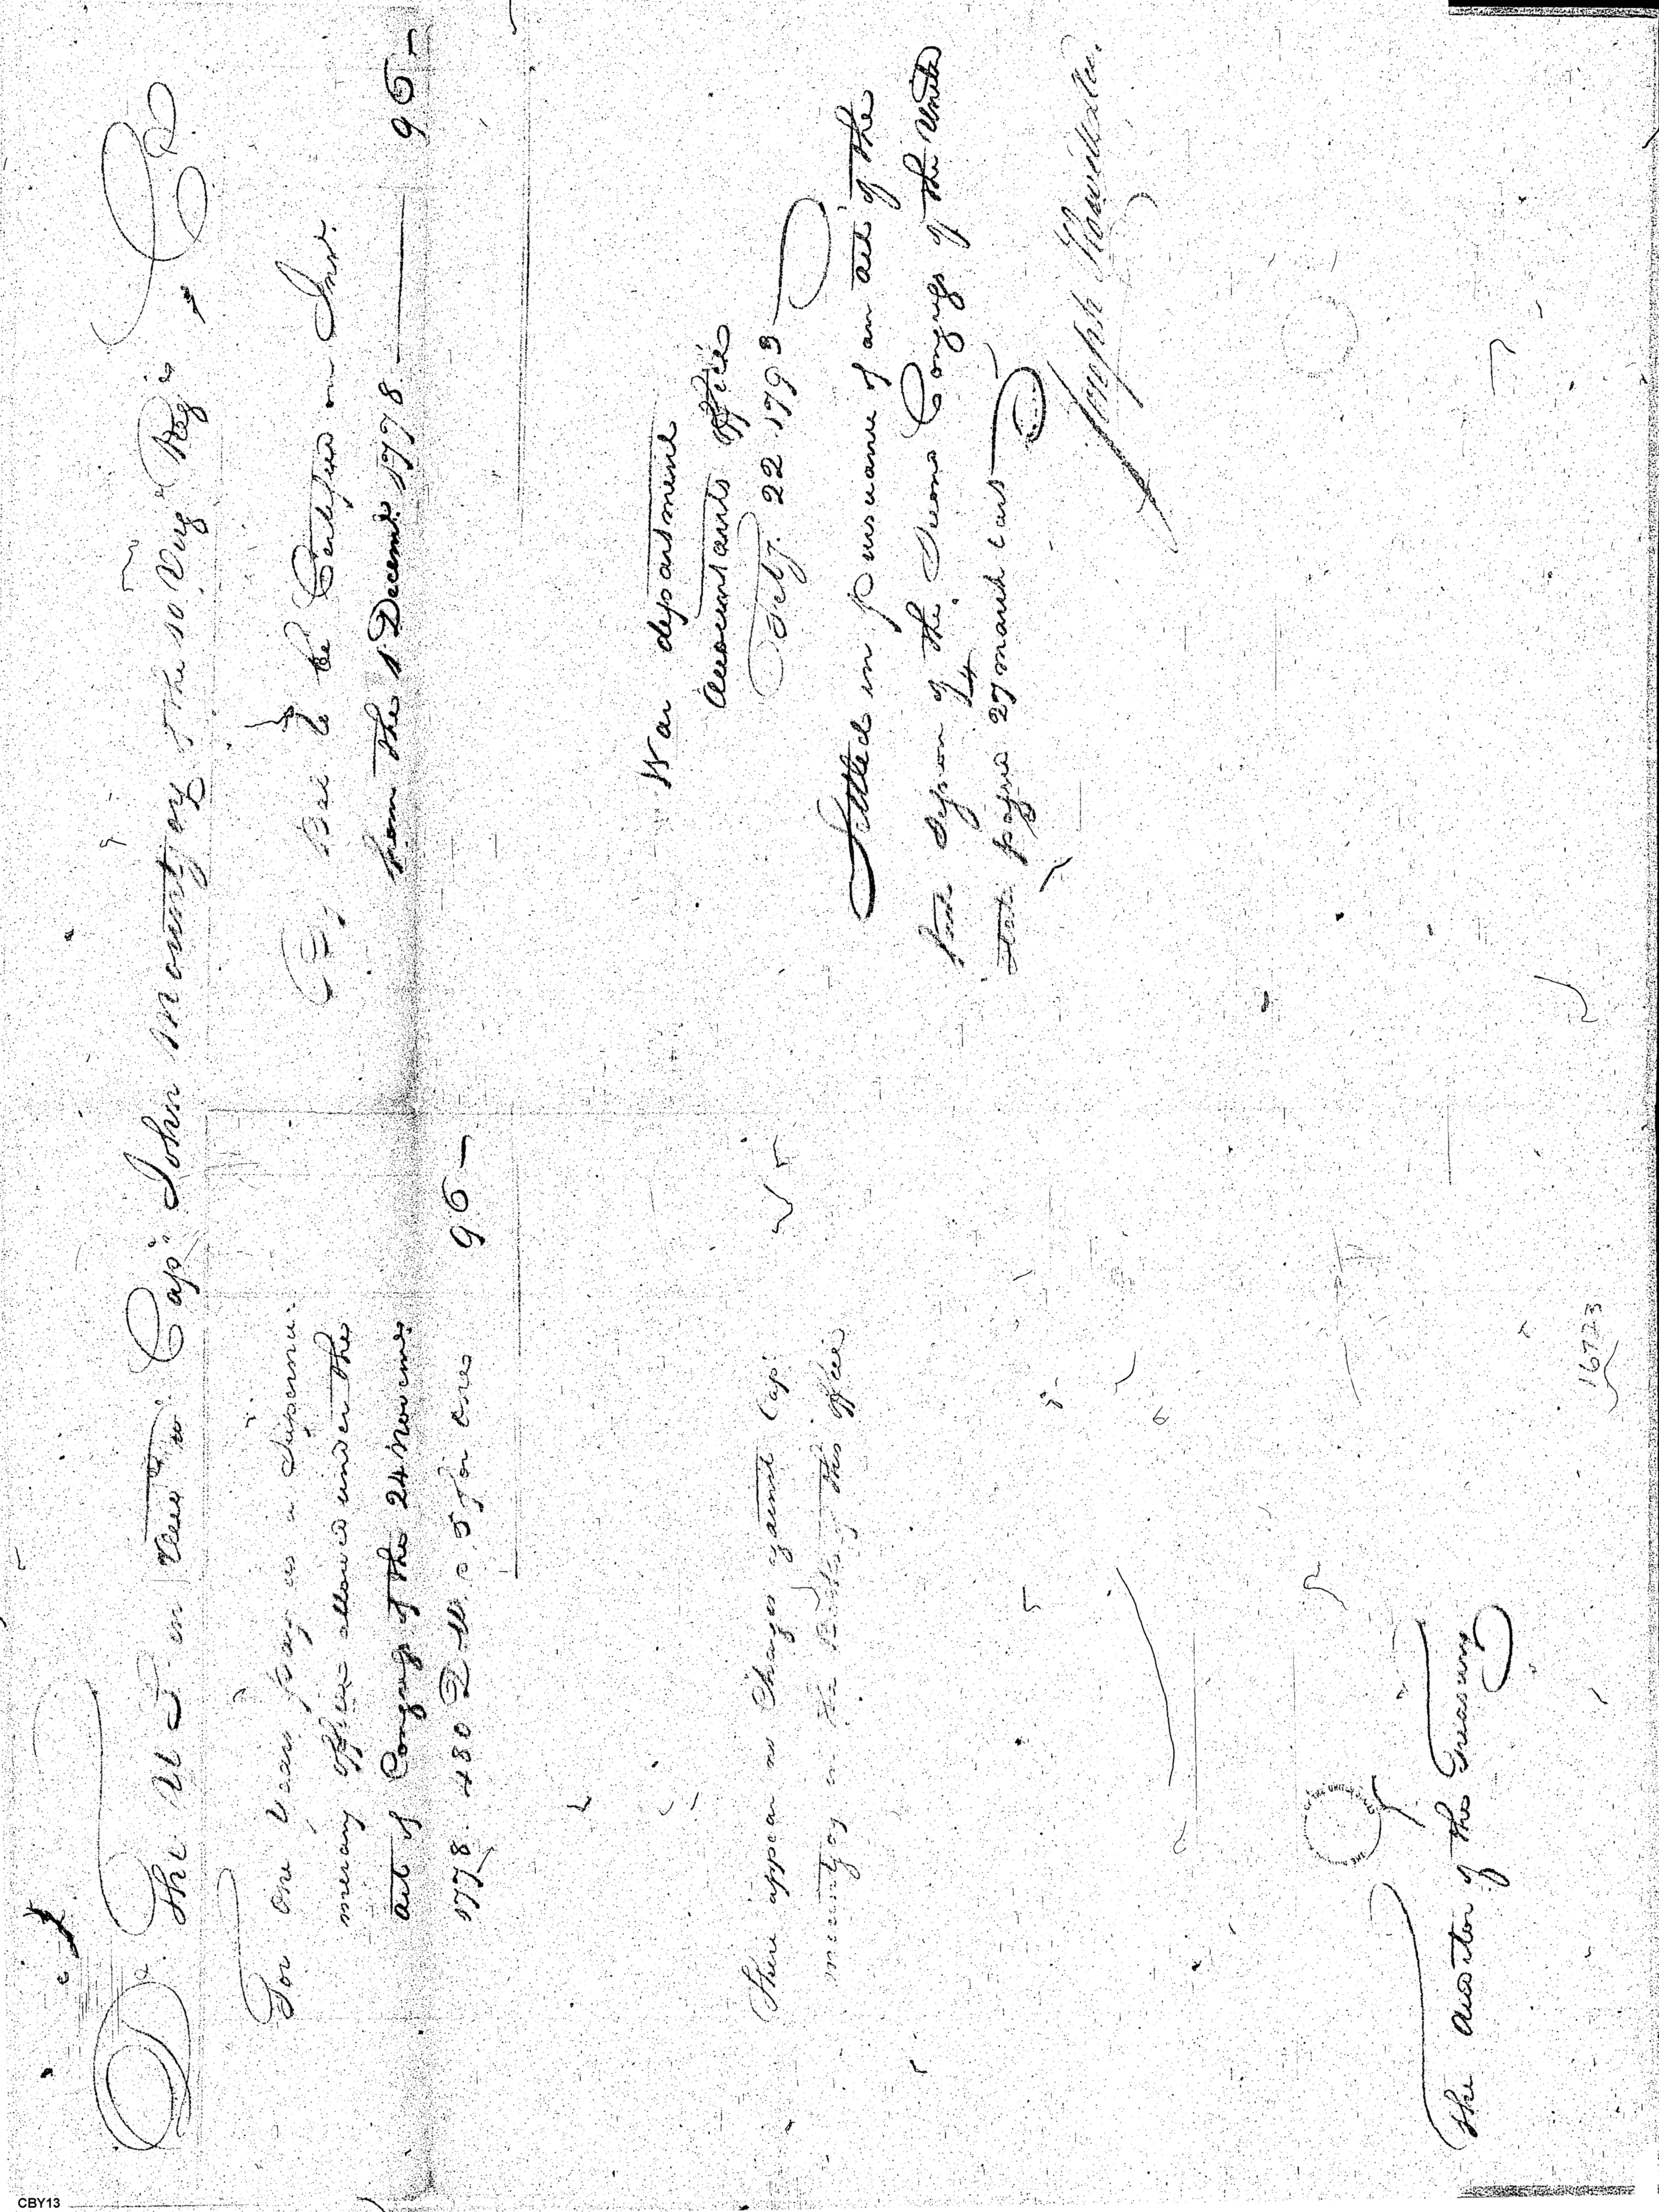 Dr The U S in Acct wt Capt John Mountjoy of the 10 Virg Regt Cr
For one Years pay as a Supernu-
merary officer allowed under the
act of Congress of the 24 Novemr
1778. 480 Drs. @ 5 for one 96 —
By Bal to be Certified on Intt.
from the 1 Decemr 1778 — 96 —
War department
Accountants office
Feby. 22. 1793
There appear no Charges against Capt
Mountjoy in the Books of this office
Settled in pursuance of an act of the
first Session of the Second Congress of the United
States passed 27 march last
Joseph Howell
The Auditor of the Treasury
16723
CBY13